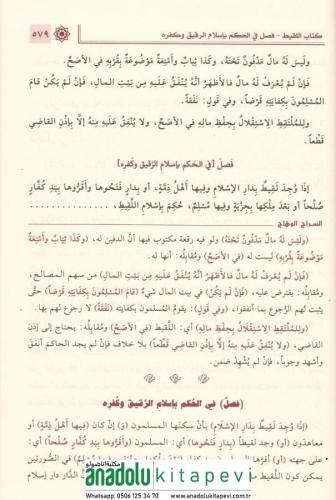 كتاب اللقيط - فصل في الحكم بإسلام الرقيق وكفره ٥٧٩
وَلَيْسَ لَهُ مالٌ مَدْفُونٌ تَحْتَهُ، وَكَذَا ثِيابٌ وَأَمْتِعَةٌ مَوْضُوعَةٌ بِقُرْبِهِ فِي الأَصَحِّ.
فَإِنْ لَمْ يُعْرَفْ لَهُ مالٌ فالأَظْهَرُ أَنَّهُ يُنْفَقُ عَلَيْهِ مِنْ بَيْتِ المالِ، فَإِنْ لَمْ يَكُنْ قامَ
المُسْلِمُونَ بِكِفايَتِهِ قَرْضاً، وفي قَولٍ: نَفَقَةً.
وَلِلمُلْتَقِطِ الاِسْتِقْلالُ بِحِفْظِ مالِهِ في الأَصَحِّ، ولا يُنْفِقُ عَلَيهِ مِنْهُ إِلّا بِإِذْنِ القاضي
قَطْعاً.
فصلٌ [في الحُكم بإسلام الرَّقيق وكُفرِه]
إِذَا وُجِدَ لَقِيطٌ بِدارِ الإِسْلامِ وفِيها أَهْلُ ذِمَّةٍ، أو بِدارٍ فَتَحُوها وأَقَرُّوها بِيَدِ كُفَّارٍ
صُلْحاً أو بَعدَ مِلْكِها بِجِزْيَةٍ وفِيها مُسْلِمٌ، حُكِمَ بِإِسْلامِ اللَّقِيطِ،
السراج الوهاج
(وَلَيسَ لَهُ مالٌ مَدفُونٌ تَحْتَهُ) ولو فيه رقعة مكتوب فيها أنّ الدفين له، (وَكَذَا ثِيَابٌ وَأَمْتِعَةٌ
مَوْضُوعَةٌ بِقُرْبِهِ) ليست له (في الأَصَحِّ) ومقابلُه: أنها له.
(فَإِنْ لَمْ يُعْرَفْ لَهُ مالٌ فالأَظْهَرُ أَنَّهُ يُنْفَقُ عَلَيْهِ مِنْ بَيْتِ المالِ) من سهم المصالح،
ومُقابلُه: يقترض عليه، (فَإِنْ لَمْ يَكُنْ) في بيت المال شيءٌ (قَامَ المُسْلِمُونَ بِكِفايَتِهِ قَرْضاً) حتَّى
يثبت لهم الرُّجوع بما أنفقوا، (وفي قَولٍ): يقومُ المُسلمون بكفايته (نَفَقَةً) لا رجوع لهم بها.
(وَلِلمُلْتَقِطِ الاِسْتِقْلالُ بِحِفْظِ مالِهِ) أي: اللَّقيط (في الأَصَحِّ) ومُقابلُه: يحتاج إلى إذن
القاضي، (ولا يُنْفِقُ عَلَيْهِ مِنْهُ إِلّا بِإِذْنِ القاضي قَطْعاً) بلا خلاف فإن لم يجد الحاكم أنفق
وأشهد وجوباً، فإن لم يُشهد ضمن.
(فصلٌ) في الحُكم بإسلام الرَّقيق وكُفرِه
(إِذَا وُجِدَ لَقِيطٌ بِدارِ الإِسْلامِ) بأن سكنها المسلمون (و) إن كان (فِيها أَهْلُ ذِمَّةٍ) أو
معاهدون (أو) وجد لقيطٌ (بِدارٍ فَتَحُوها) أي: المسلمون (وأَقَرُّوها بِيَدِ كُفَّارٍ صُلْحاً) أي:
مكتبة الأناضول
anadolukitapevi
Whatsapp: 0506 125 34 70 www.anadolukitapevi.com